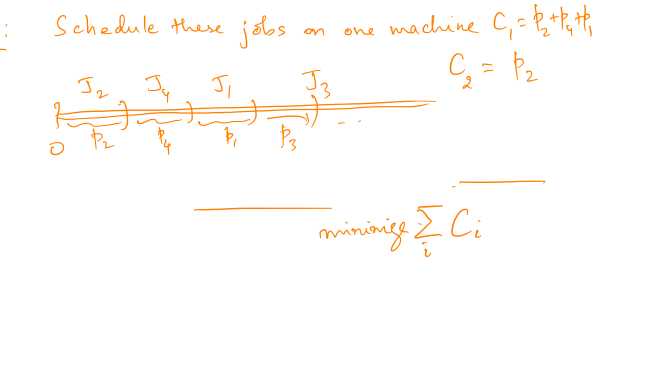 : Schedule these jobs on one machine C₁ = p₂+p₄+p₁
C₂ = p₂
J₂ J₄ J₁ J₃
0 p₂ p₄ p₁ p₃ ...
minimize ∑ᵢ Cᵢ